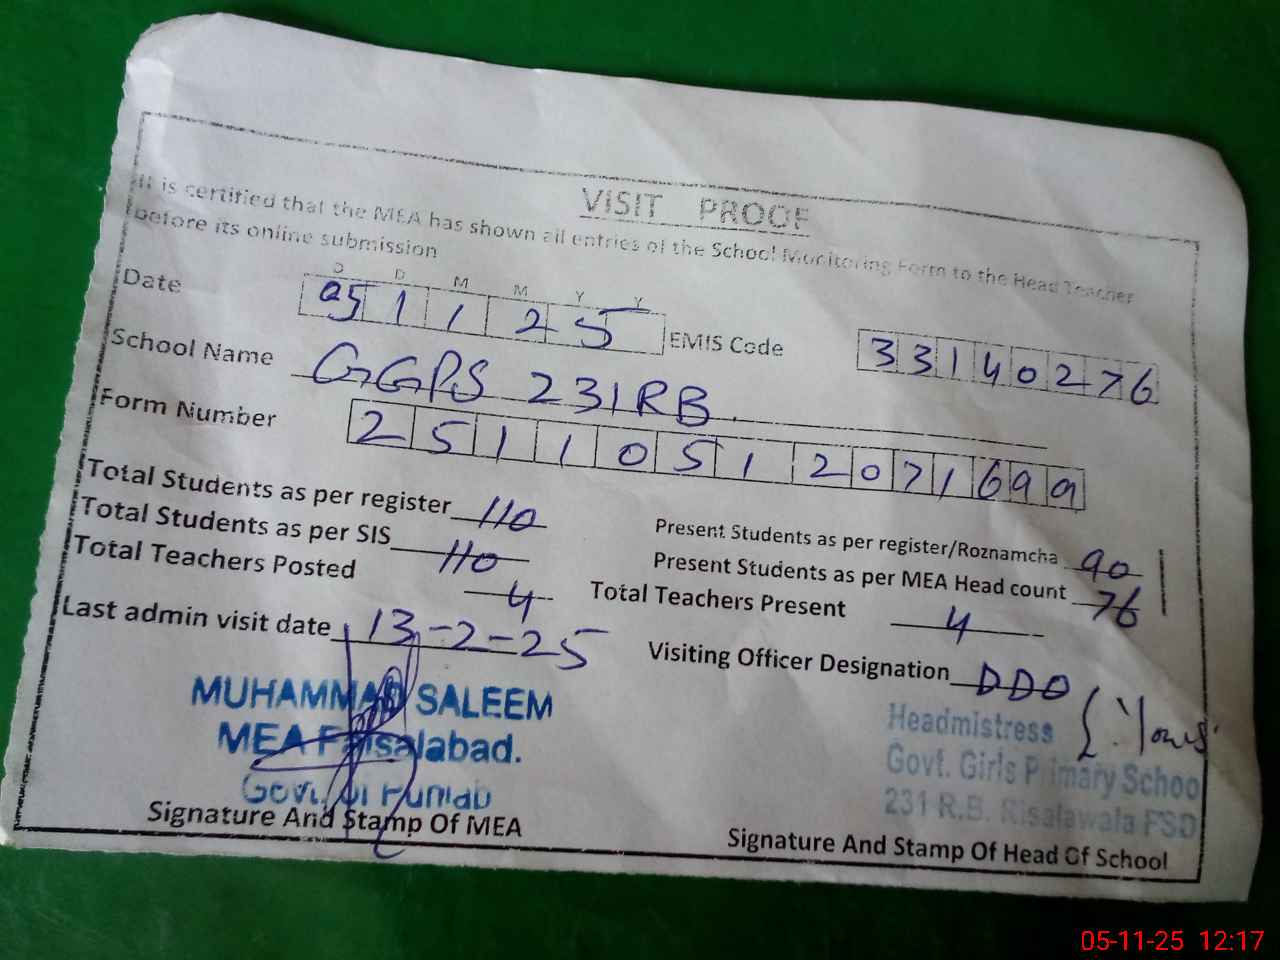 VISIT PROOF
It is certified that the MEA has shown all entries of the School Monitoring Form to the Head Teacher
before its online submission
D D M M Y Y
Date 05 1 1 2 5 EMIS Code 33140276
School Name GGPS 231RB.
Form Number 25110512071699
Total Students as per register 110 Present Students as per register/Roznamcha 90
Total Students as per SIS 110 Present Students as per MEA Head count 76
Total Teachers Posted 4 Total Teachers Present 4
Last admin visit date 13-2-25 Visiting Officer Designation DDO
MUHAMMAD SALEEM
MEA Faisalabad.
Govt. of Punjab
Headmistress
Govt. Girls Primary School
231 R.B. Risalawala FSD
Signature And Stamp Of MEA Signature And Stamp Of Head Of School
05-11-25 12:17